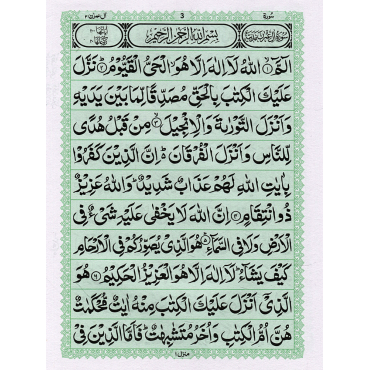 اٰل عمرٰن ٣
3
سورة
بِسْمِ اللّٰهِ الرَّحْمٰنِ الرَّحِيْمِ
الٓمّٓ ۝١ اللّٰهُ لَآ اِلٰهَ اِلَّا هُوَ الْحَىُّ الْقَيُّوْمُ ۝٢ نَزَّلَ
عَلَيْكَ الْكِتٰبَ بِالْحَقِّ مُصَدِّقًا لِّمَا بَيْنَ يَدَيْهِ
وَاَنْزَلَ التَّوْرٰىةَ وَالْاِنْجِيْلَ ۝٣ مِنْ قَبْلُ هُدًى
لِّلنَّاسِ وَاَنْزَلَ الْفُرْقَانَ ؕ اِنَّ الَّذِيْنَ كَفَرُوْا
بِاٰيٰتِ اللّٰهِ لَهُمْ عَذَابٌ شَدِيْدٌ ؕ وَاللّٰهُ عَزِيْزٌ
ذُو انْتِقَامٍ ۝٤ اِنَّ اللّٰهَ لَا يَخْفٰى عَلَيْهِ شَىْءٌ فِى
الْاَرْضِ وَلَا فِى السَّمَآءِ ۝٥ هُوَ الَّذِىْ يُصَوِّرُكُمْ فِى الْاَرْحَامِ
كَيْفَ يَشَآءُ ؕ لَآ اِلٰهَ اِلَّا هُوَ الْعَزِيْزُ الْحَكِيْمُ ۝٦ هُوَ
الَّذِىْٓ اَنْزَلَ عَلَيْكَ الْكِتٰبَ مِنْهُ اٰيٰتٌ مُّحْكَمٰتٌ
هُنَّ اُمُّ الْكِتٰبِ وَاُخَرُ مُتَشٰبِهٰتٌ ؕ فَاَمَّا الَّذِيْنَ فِىْ
منزل ١